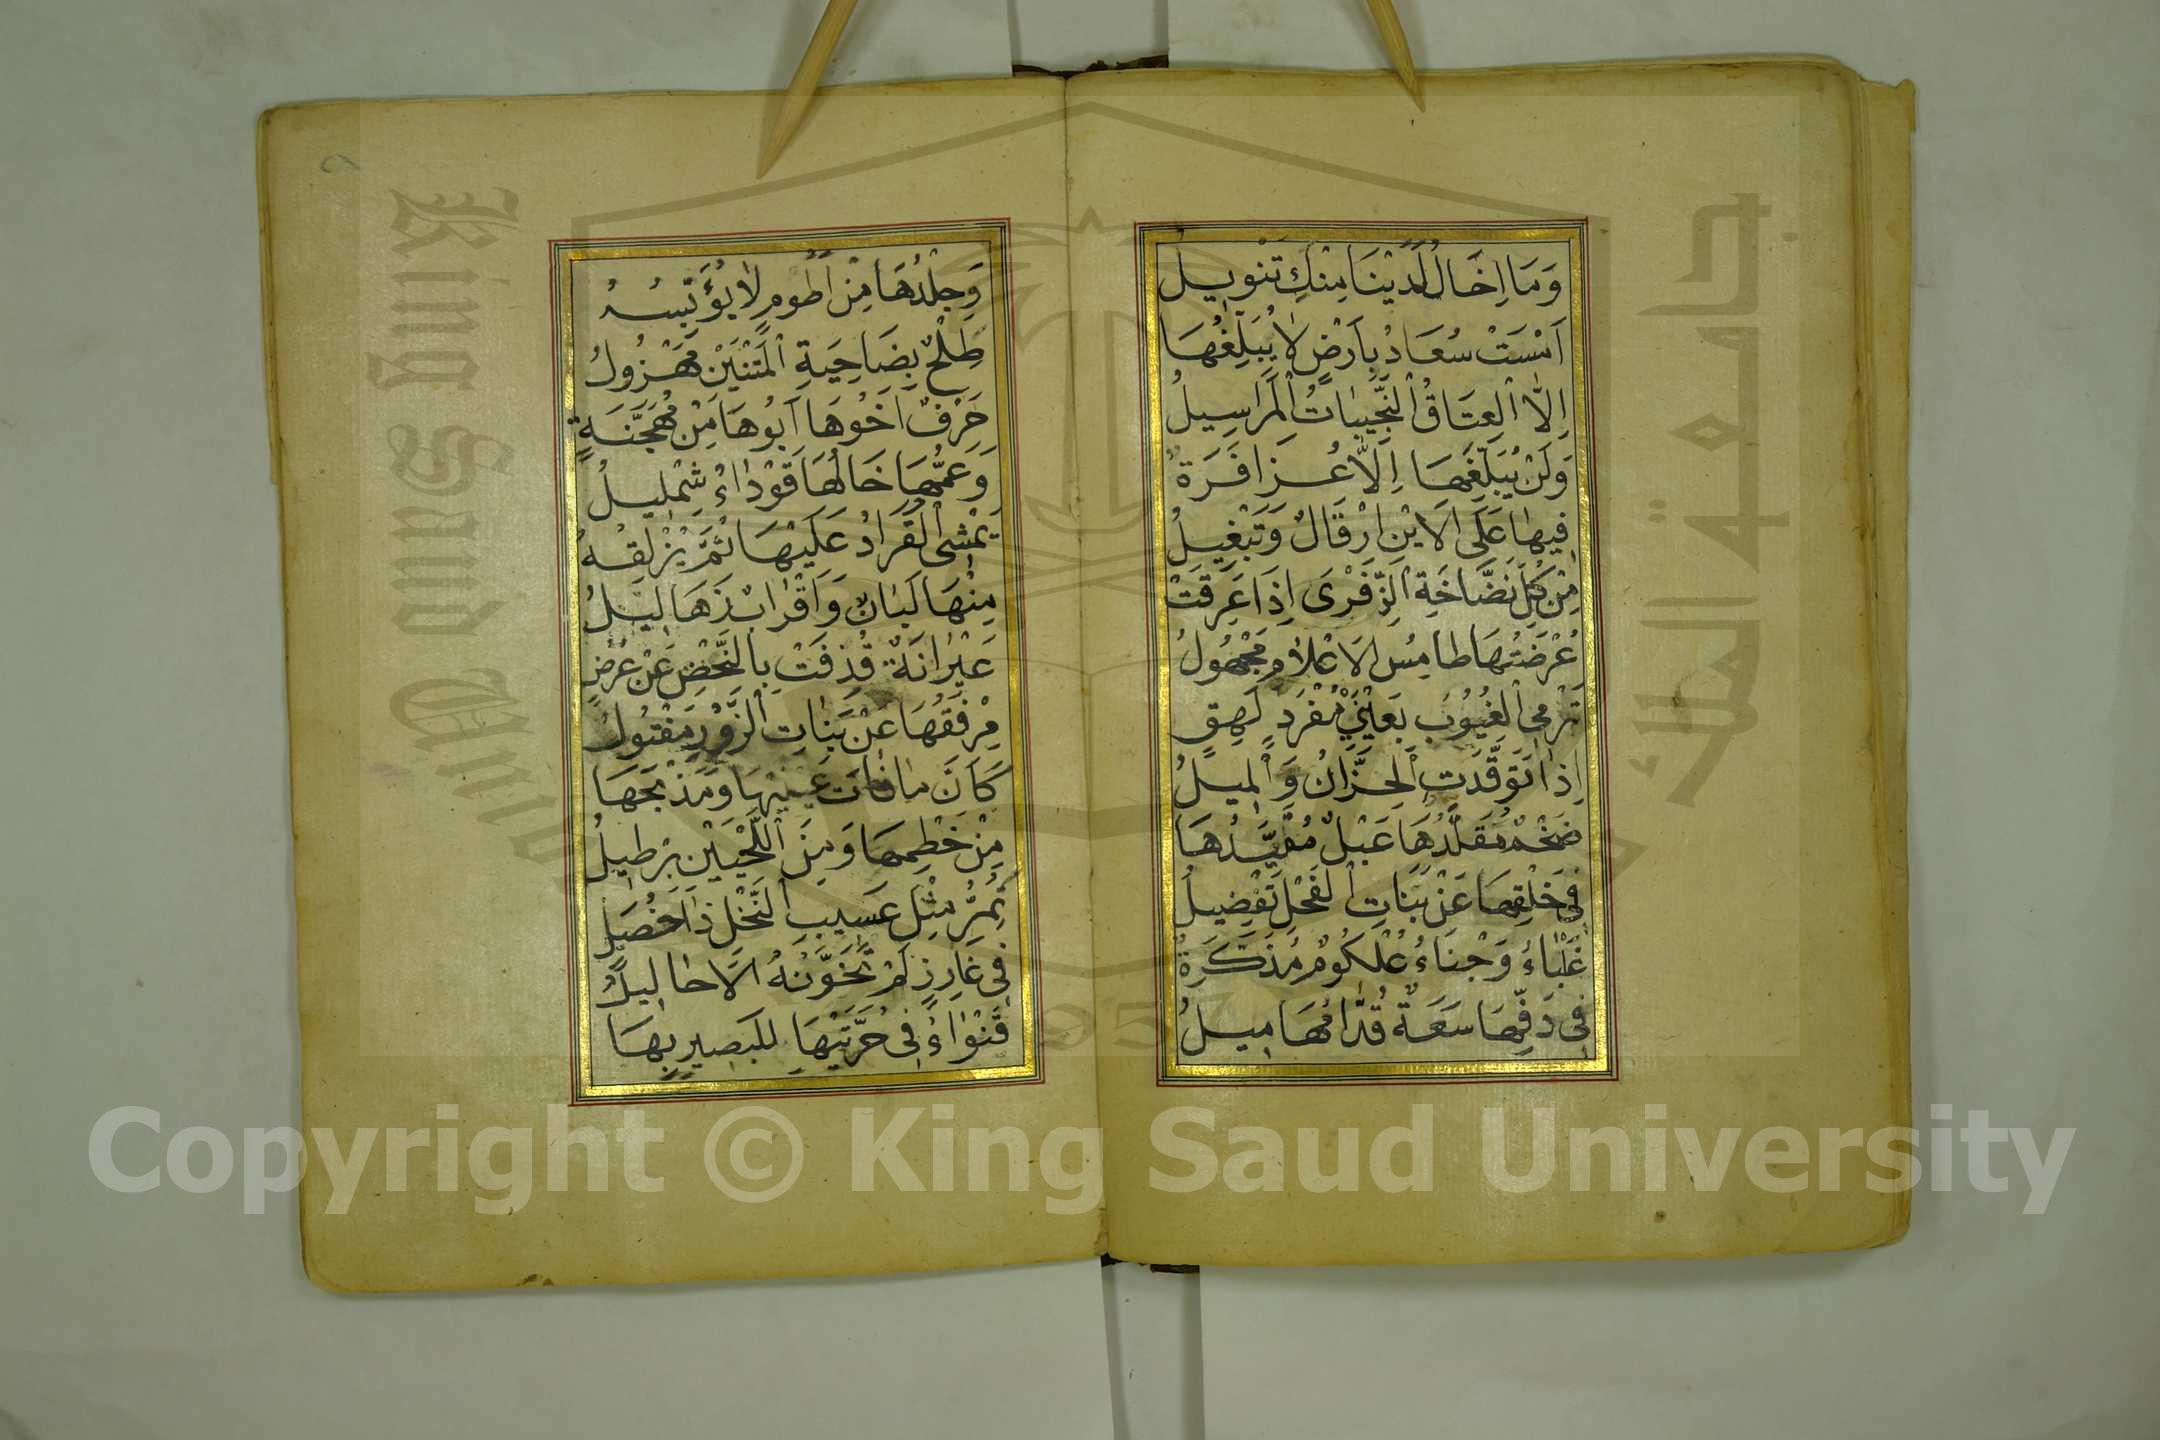 وَمَا اِخَالُ لَدَيْنَا مِنْكِ تَنْوِيلُ
اَمْسَتْ سُعَادُ بِاَرْضٍ لَا يُبَلِّغُهَا
اِلَّا الْعِتَاقُ النَّجِيبَاتُ الْمَرَاسِيلُ
وَلَنْ يُبَلِّغَهَا اِلَّا عُزَافَرَةٌ
فِيهَا عَلَى الْاَيْنِ اِرْقَالٌ وَتَبْغِيلُ
مِنْ كُلِّ نَضَّاخَةِ الزِّفْرَى اِذَا عَرِقَتْ
عُرْضَتُهَا طَامِسُ الْاَعْلَامِ مَجْهُولُ
تَرْمِى الْغُيُوبَ بِعَيْنَىْ مُفْرَدٍ لَهِقٍ
اِذَا تَوَقَّدَتِ الْحِزَّانُ وَالْمِيلُ
ضَخْمٌ مُقَلَّدُهَا عَبْلٌ مُقَيَّدُهَا
فِى خَلْقِهَا عَنْ بَنَاتِ الْفَحْلِ تَفْضِيلُ
غَلْبَاءُ وَجْنَاءُ عُلْكُومٌ مُذَكَّرَةٌ
فِى دَفِّهَا سَعَةٌ قُدَّامُهَا مِيلُ
وَجِلْدُهَا مِنْ اَطُومٍ لَا يُؤَيِّسُهُ
طِلْحٌ بِضَاحِيَةِ الْمَتْنَيْنِ مَهْزُولُ
حَرْفٌ اَخُوهَا اَبُوهَا مِنْ مُهَجَّنَةٍ
وَعَمُّهَا خَالُهَا قَوْدَاءُ شِمْلِيلُ
يَمْشِى الْقُرَادُ عَلَيْهَا ثُمَّ يُزْلِقُهُ
مِنْهَا لَبَانٌ وَاَقْرَابٌ زَهَالِيلُ
عَيْرَانَةٌ قُذِفَتْ بِالنَّحْضِ عَنْ عُرُضٍ
مِرْفَقُهَا عَنْ بَنَاتِ الزَّوْرِ مَفْتُولُ
كَاَنَّ مَا فَاتَ عَيْنَيْهَا وَمَذْبَحَهَا
مِنْ خَطْمِهَا وَمِنَ اللَّحْيَيْنِ بِرْطِيلُ
تُمِرُّ مِثْلَ عَسِيبِ النَّخْلِ ذَا خُصَلٍ
فِى غَارِزٍ لَمْ تَخَوَّنْهُ الْاَحَالِيلُ
قَنْوَاءُ فِى حُرَّتَيْهَا لِلْبَصِيرِ بِهَا
King Saud University
جامعة الملك
1957
Copyright © King Saud University